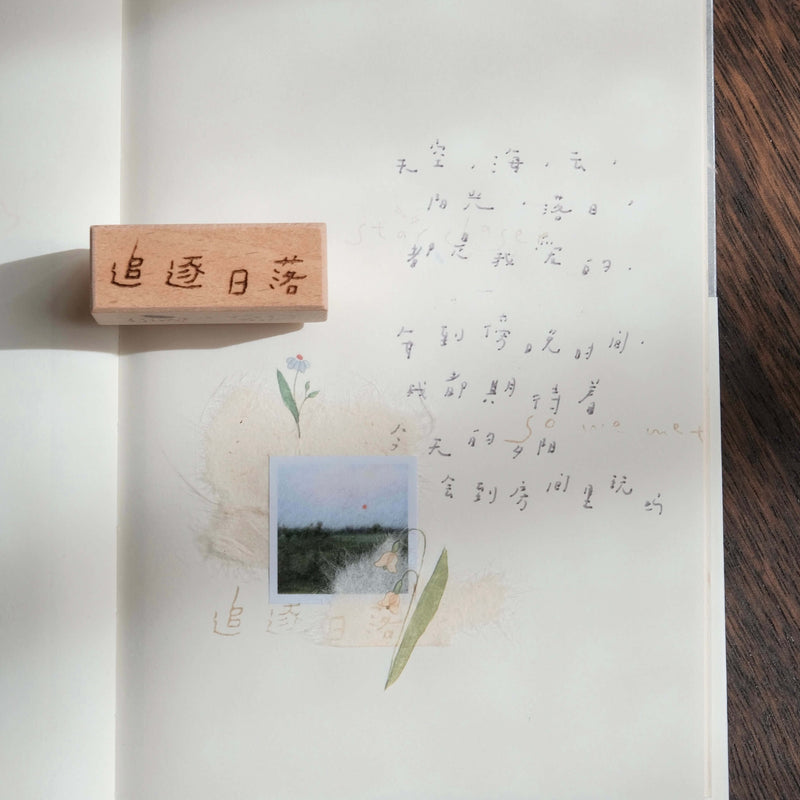 追逐日落
天空、海、云、
阳光、落日、
star chase
都是我 的.
每到傍晚时间.
我都期待着
今天的夕阳
so me met
会到房间里
追逐日落